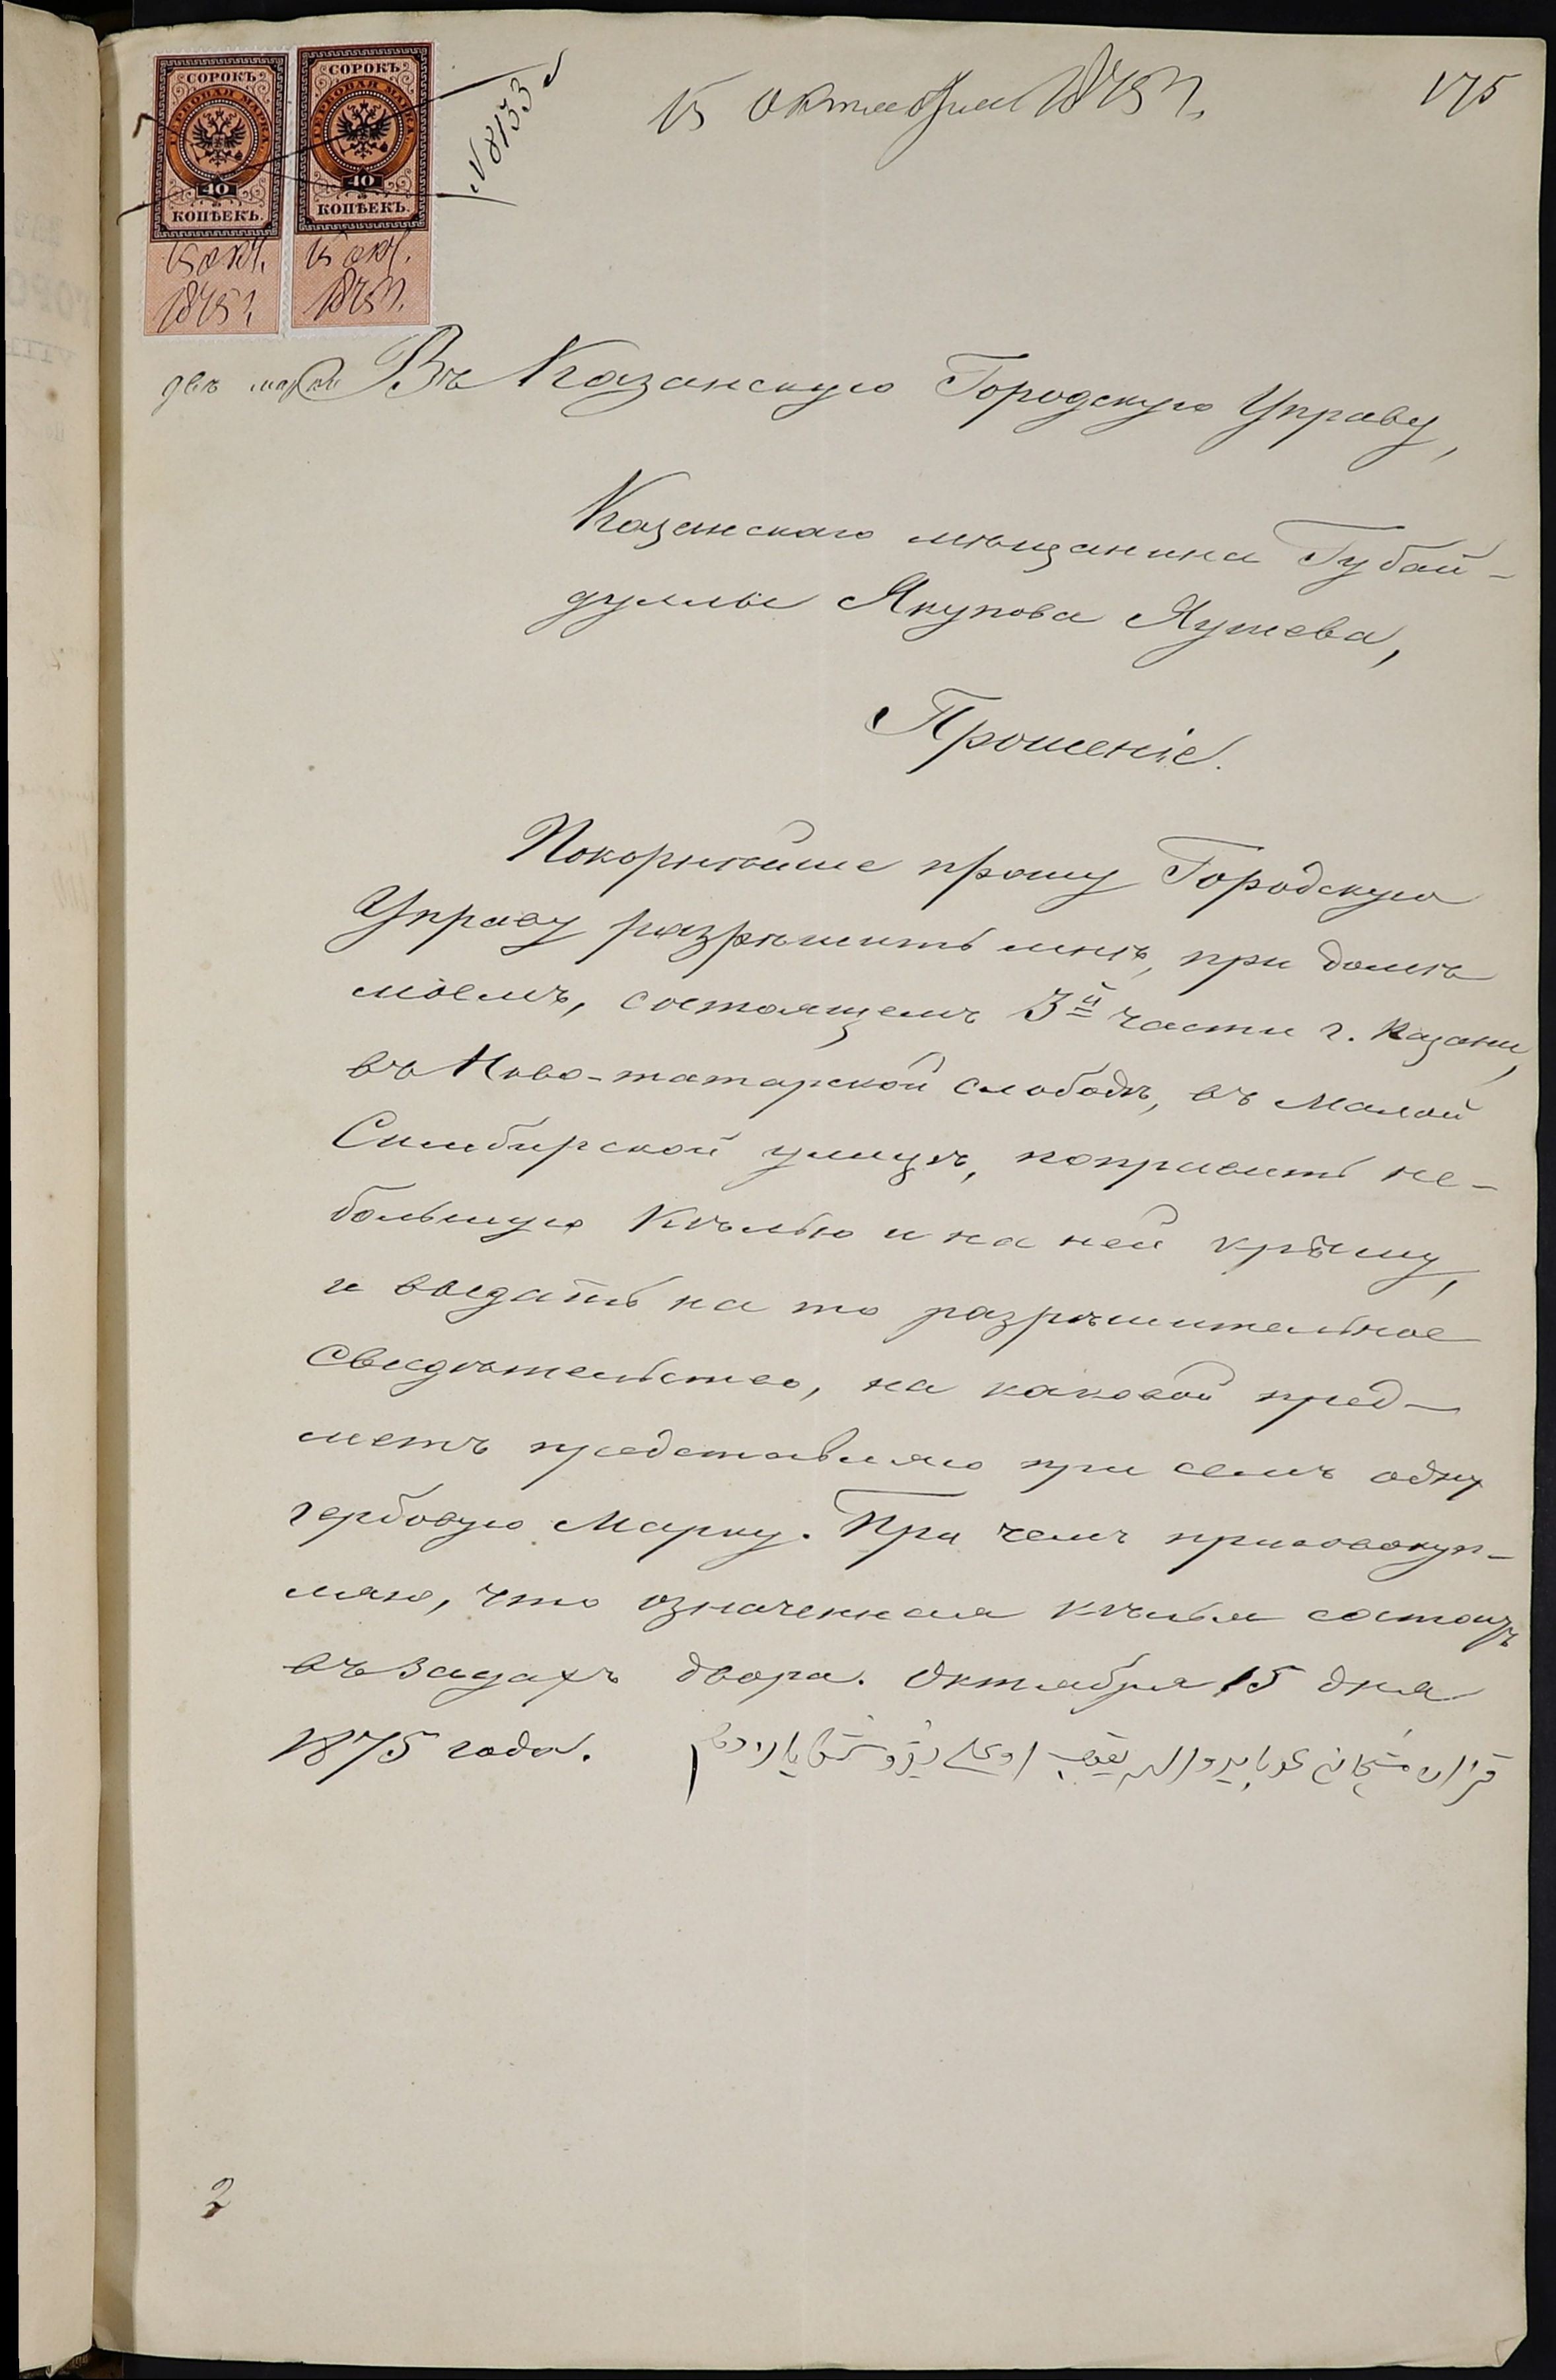 СОРОКЪ
ГЕРБОВАЯ МАРКА
40
КОПѢЕКЪ.
15 окт.
1875 г.
СОРОКЪ
ГЕРБОВАЯ МАРКА
40
КОПѢЕКЪ.
15 окт.
1875 г.
№ 8133
15 октября 1875 г.
175
двѣ марки
Въ Казанскую Городскую Управу,
Казанскаго мѣщанина Губай-
дуллы Якупова Яушева,
Прошеніе.
Покорнѣйше прошу Городскую
Управу разрѣшить мнѣ, при домѣ
моемъ, состоящемъ 3й части г. Казани,
въ Ново-татарской слободѣ, въ Малой
Симбирской улицѣ, поправить не-
большую Кѣлью и на ней крышу,
и выдать на то разрѣшительное
свидѣтельство, на каковой пред-
метъ представляю при семъ одну
гербовую Марку. При чемъ присовокуп-
ляю, что означенная кѣлья состоитъ
въ задахъ двора. Октября 15 дня
1875 года.
2